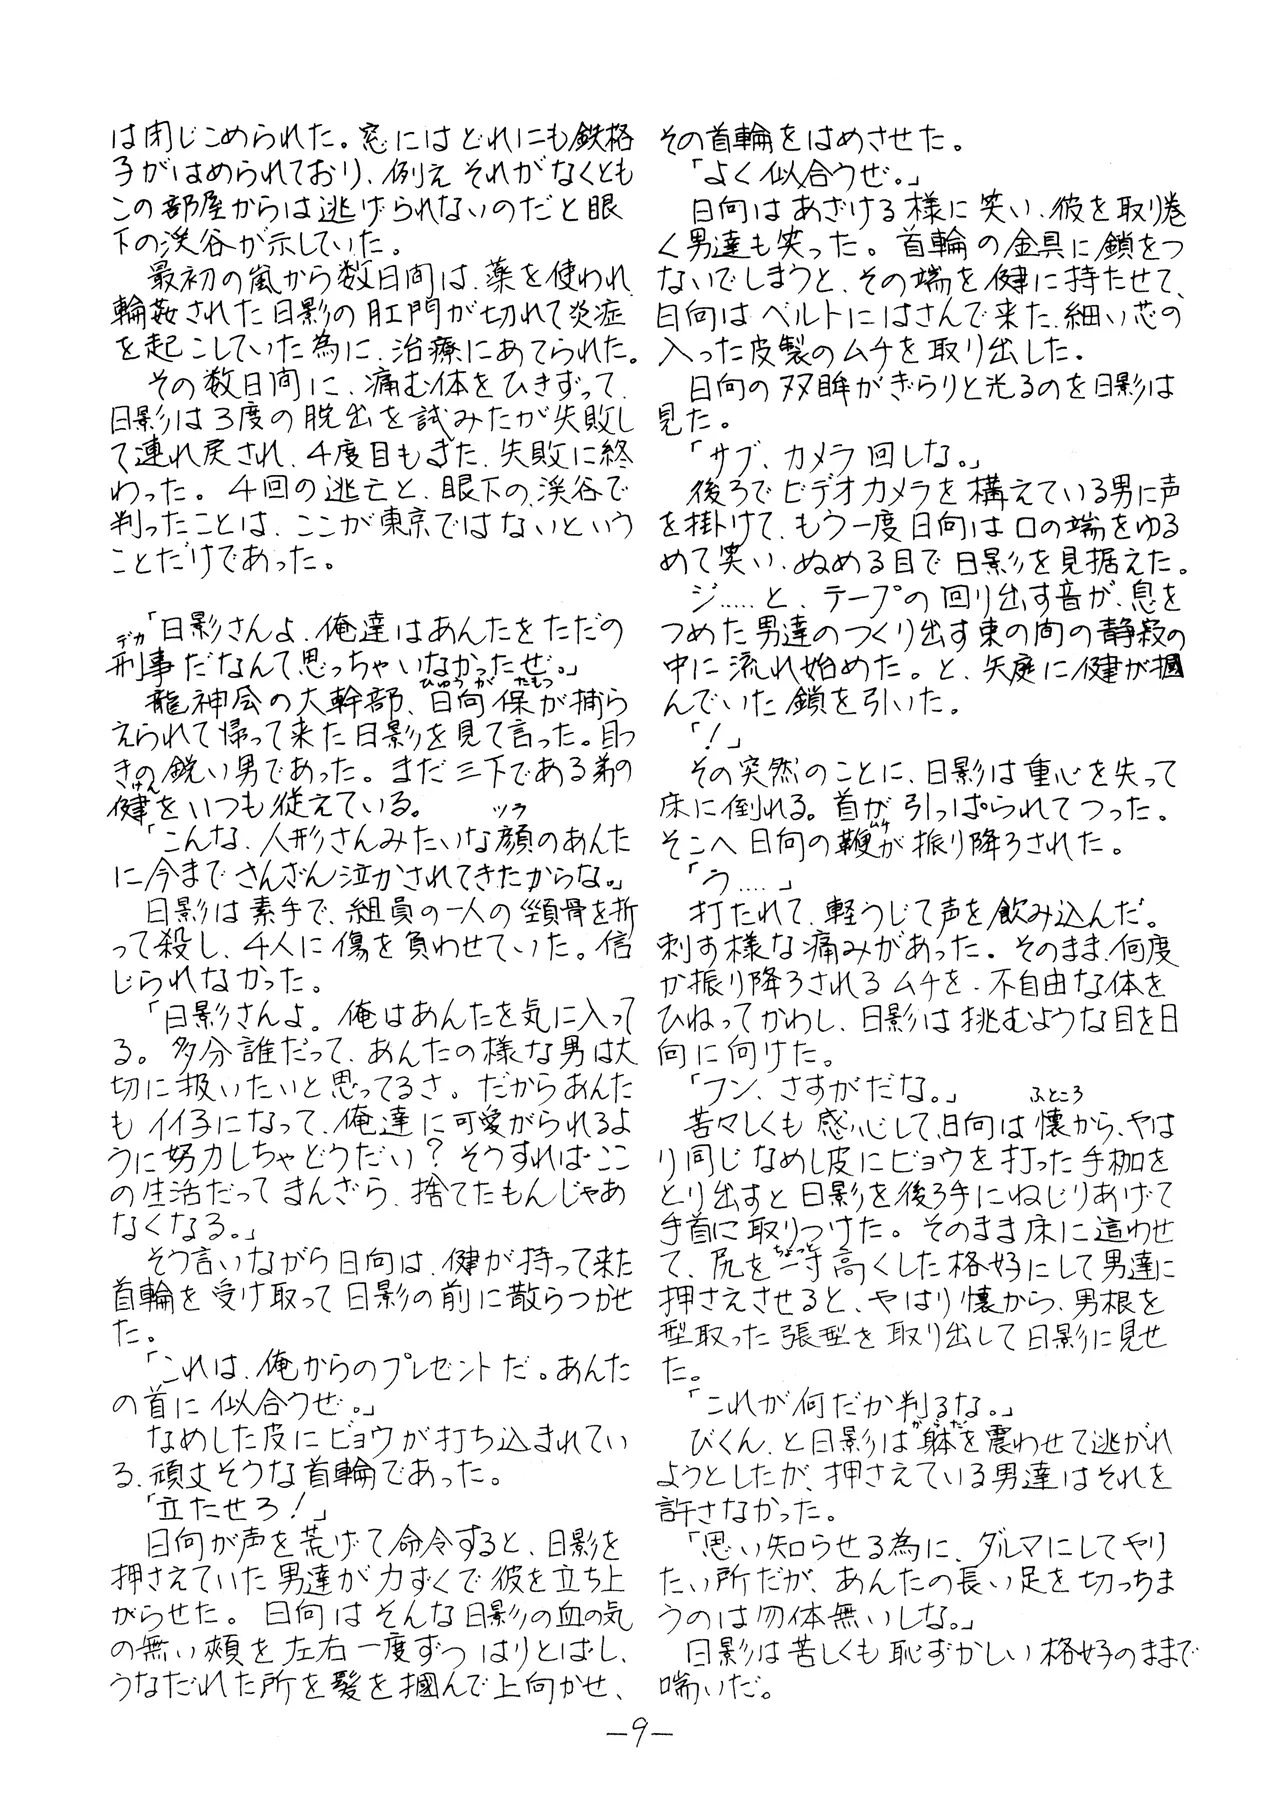 は閉じこめられた。窓にはどれにも鉄格
子がはめられており、例えそれがなくとも
この部屋からは逃げられないのだと眼
下の渓谷が示していた。
最初の嵐から数日間は、薬を使われ
輪姦された日影の肛門が切れて炎症
を起こしていた為に、治療にあてられた。
その数日間に、痛む体をひきずって、
日影は3度の脱出を試みたが失敗し
て連れ戻され、4度目もまた、失敗に終
わった。4回の逃亡と、眼下の渓谷で
判ったことは、ここが東京ではないという
ことだけであった。
「日影さんよ、俺達はあんたをただの
デカ
刑事だなんて思っちゃいなかったぜ。」
ひゅうが たもつ
龍神会の大幹部、日向保が捕ら
えられて帰って来た日影を見て言った。目つ
きの鋭い男であった。まだ三下である弟の
けん
健をいつも従えている。
ツラ
「こんな、人形さんみたいな顔のあんた
に今までさんざん泣かされてきたからな。」
日影は素手で、組員の一人の頸骨を折
って殺し、4人に傷を負わせていた。信
じられなかった。
「日影さんよ。俺はあんたを気に入って
る。多分誰だって、あんたの様な男は大
切に扱いたいと思ってるさ。だからあんた
もイイ子になって、俺達に可愛がられるよ
うに努力しちゃどうだい?そうすればここ
の生活だってまんざら、捨てたもんじゃあ
なくなる。」
そう言いながら日向は、健が持って来た
首輪を受け取って日影の前に散らつかせ
た。
「これは、俺からのプレゼントだ。あんた
の首に似合うぜ。」
なめした皮にビョウが打ち込まれてい
る、頑丈そうな首輪であった。
「立たせろ!」
日向が声を荒げて命令すると、日影を
押さえていた男達が力ずくで彼を立ち上
がらせた。日向はそんな日影の血の気
の無い頬を左右一度ずつはりとばし、
うなだれた所を髪を掴んで上向かせ、
その首輪をはめさせた。
「よく似合うぜ。」
日向はあざける様に笑い、彼を取り巻
く男達も笑った。首輪の金具に鎖をつ
ないでしまうと、その端を健に持たせて、
日向はベルトにはさんで来た、細い芯の
入った皮製のムチを取り出した。
日向の双眸がぎらりと光るのを日影は
見た。
「サブ、カメラ回しな。」
後ろでビデオカメラを構えている男に声
を掛けて、もう一度日向は口の端をゆる
めて笑い、ぬめる目で日影を見据えた。
ジ.....と、テープの回り出す音が、息を
つめた男達のつくり出す束の間の静寂の
中に流れ始めた。と、矢庭に健が掴
んでいた鎖を引いた。
「!」
その突然のことに、日影は重心を失って
床に倒れる。首が引っぱられてつった。
ムチ
そこへ日向の鞭が振り降ろされた。
「う....」
打たれて、軽うじて声を飲み込んだ。
刺す様な痛みがあった。そのまま、何度
か振り降ろされるムチを、不自由な体を
ひねってかわし、日影は挑むような目を日
向に向けた。
「フン、さすがだな。」
ふところ
苦々しくも感心して、日向は懐から、やは
り同じなめし皮にビョウを打った手枷を
とり出すと日影を後ろ手にねじりあげて
手首に取りつけた。そのまま床に這わせ
ちょっと
て、尻を一寸高くした格好にして男達に
押さえさせると、やはり懐から、男根を
型取った張型を取り出して日影に見せ
た。
「これが何だか判るな。」
からだ
びくん、と日影は躰を震わせて逃がれ
ようとしたが、押さえている男達はそれを
許さなかった。
「思い知らせる為に、ダルマにしてやり
たい所だが、あんたの長い足を切っちま
うのは勿体無いしな。」
日影は苦しくも恥ずかしい格好のままで
喘いだ。
—9—